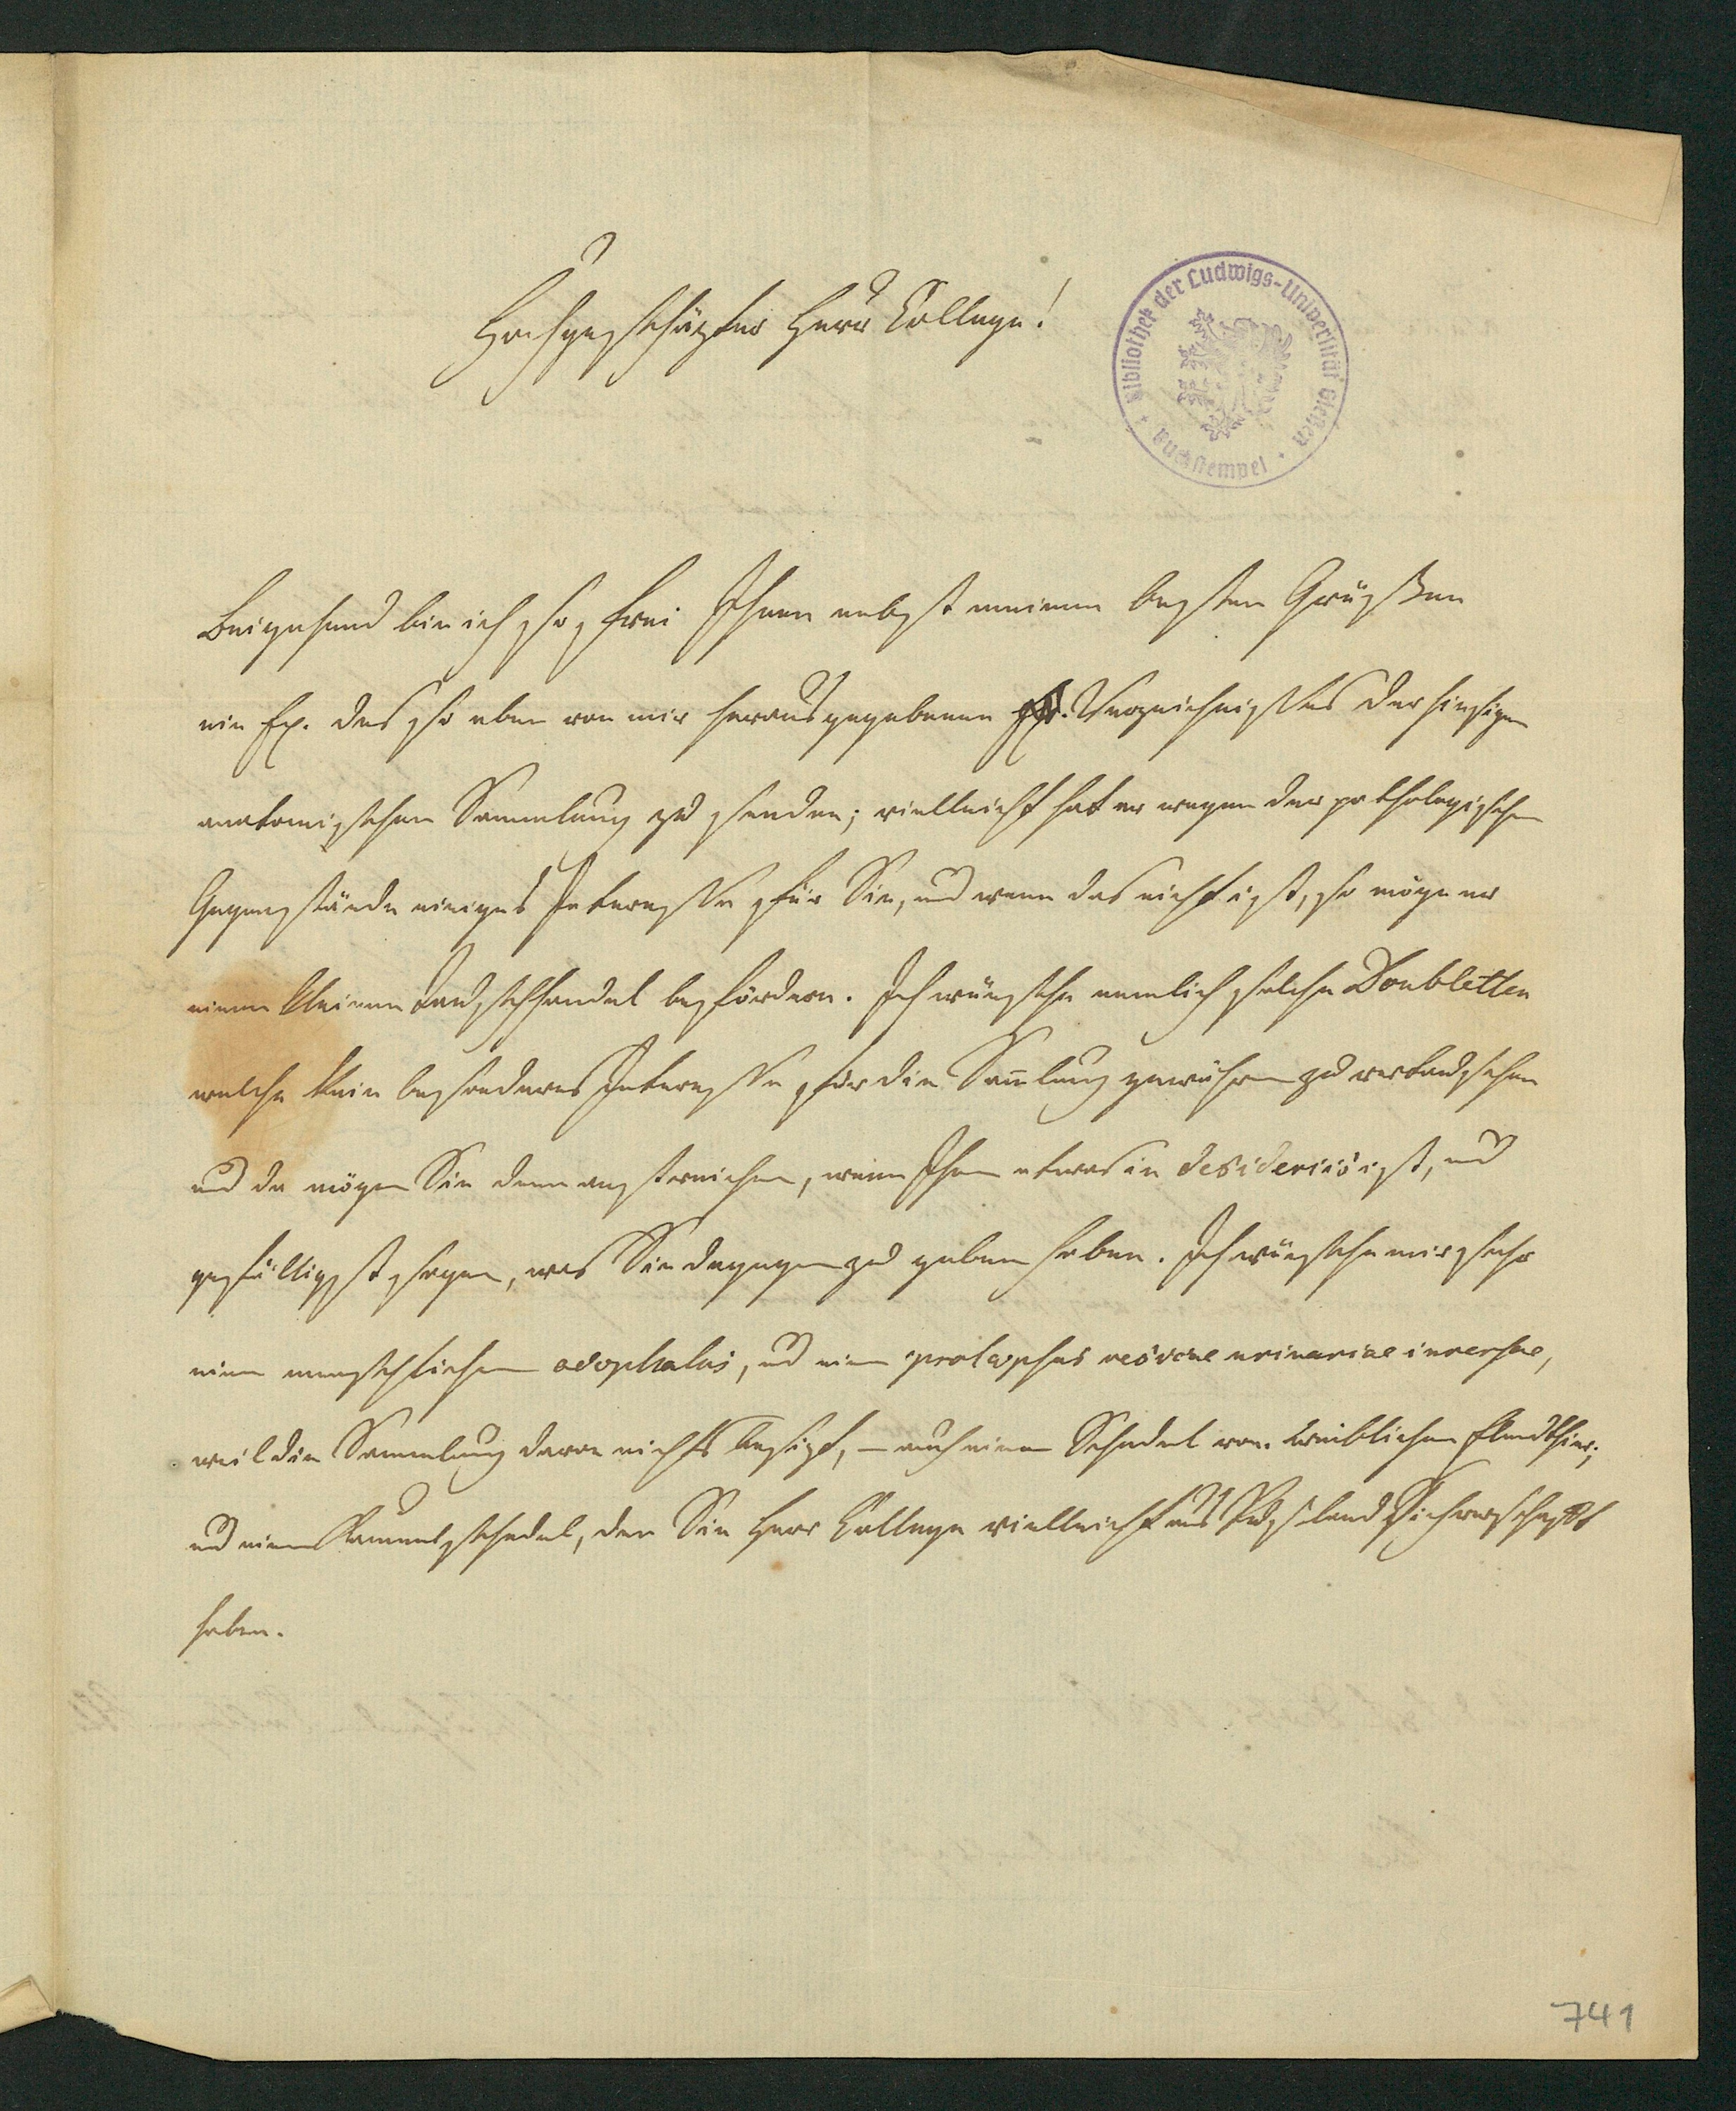 Hochgeschäzter Herr College!
Bibliothek der Ludwigs-Universität Gießen
Buchstempel
Beigehend bin ich so frei Ihnen nebst meinen besten Grüßen
ein Ex. des so eben von mir herausgegebenen Verzeichnißes der hiesigen
anatomischen Sammlung zu senden; vielleicht hat er wegen der pathologischen
Gegenstände einiges Interesse für Sie, und wenn das nicht ist, so möge er
einen kleinen Tauschhandel befördern. Ich wünsche nemlich solche Doubletten
welche kein besonderes Interesse für die Samlung gewähren zu vertauschen
und da mögen Sie denn anstreichen, wenn Ihnen etwas in desideriis ist, und
gefälligst sagen, was Sie dagegen zu geben haben. Ich wünsche mir sehr
einen menschlichen acephalus, und einen prolapsus vesicae urinariae inversae,
weil die Sammlung davon nichts besizt, – auch einen Schedel vom weiblichen Elendthier;
und einen Kameelschedel, den Sie Herr College vielleicht aus Rußland sich verschafft
haben.
741